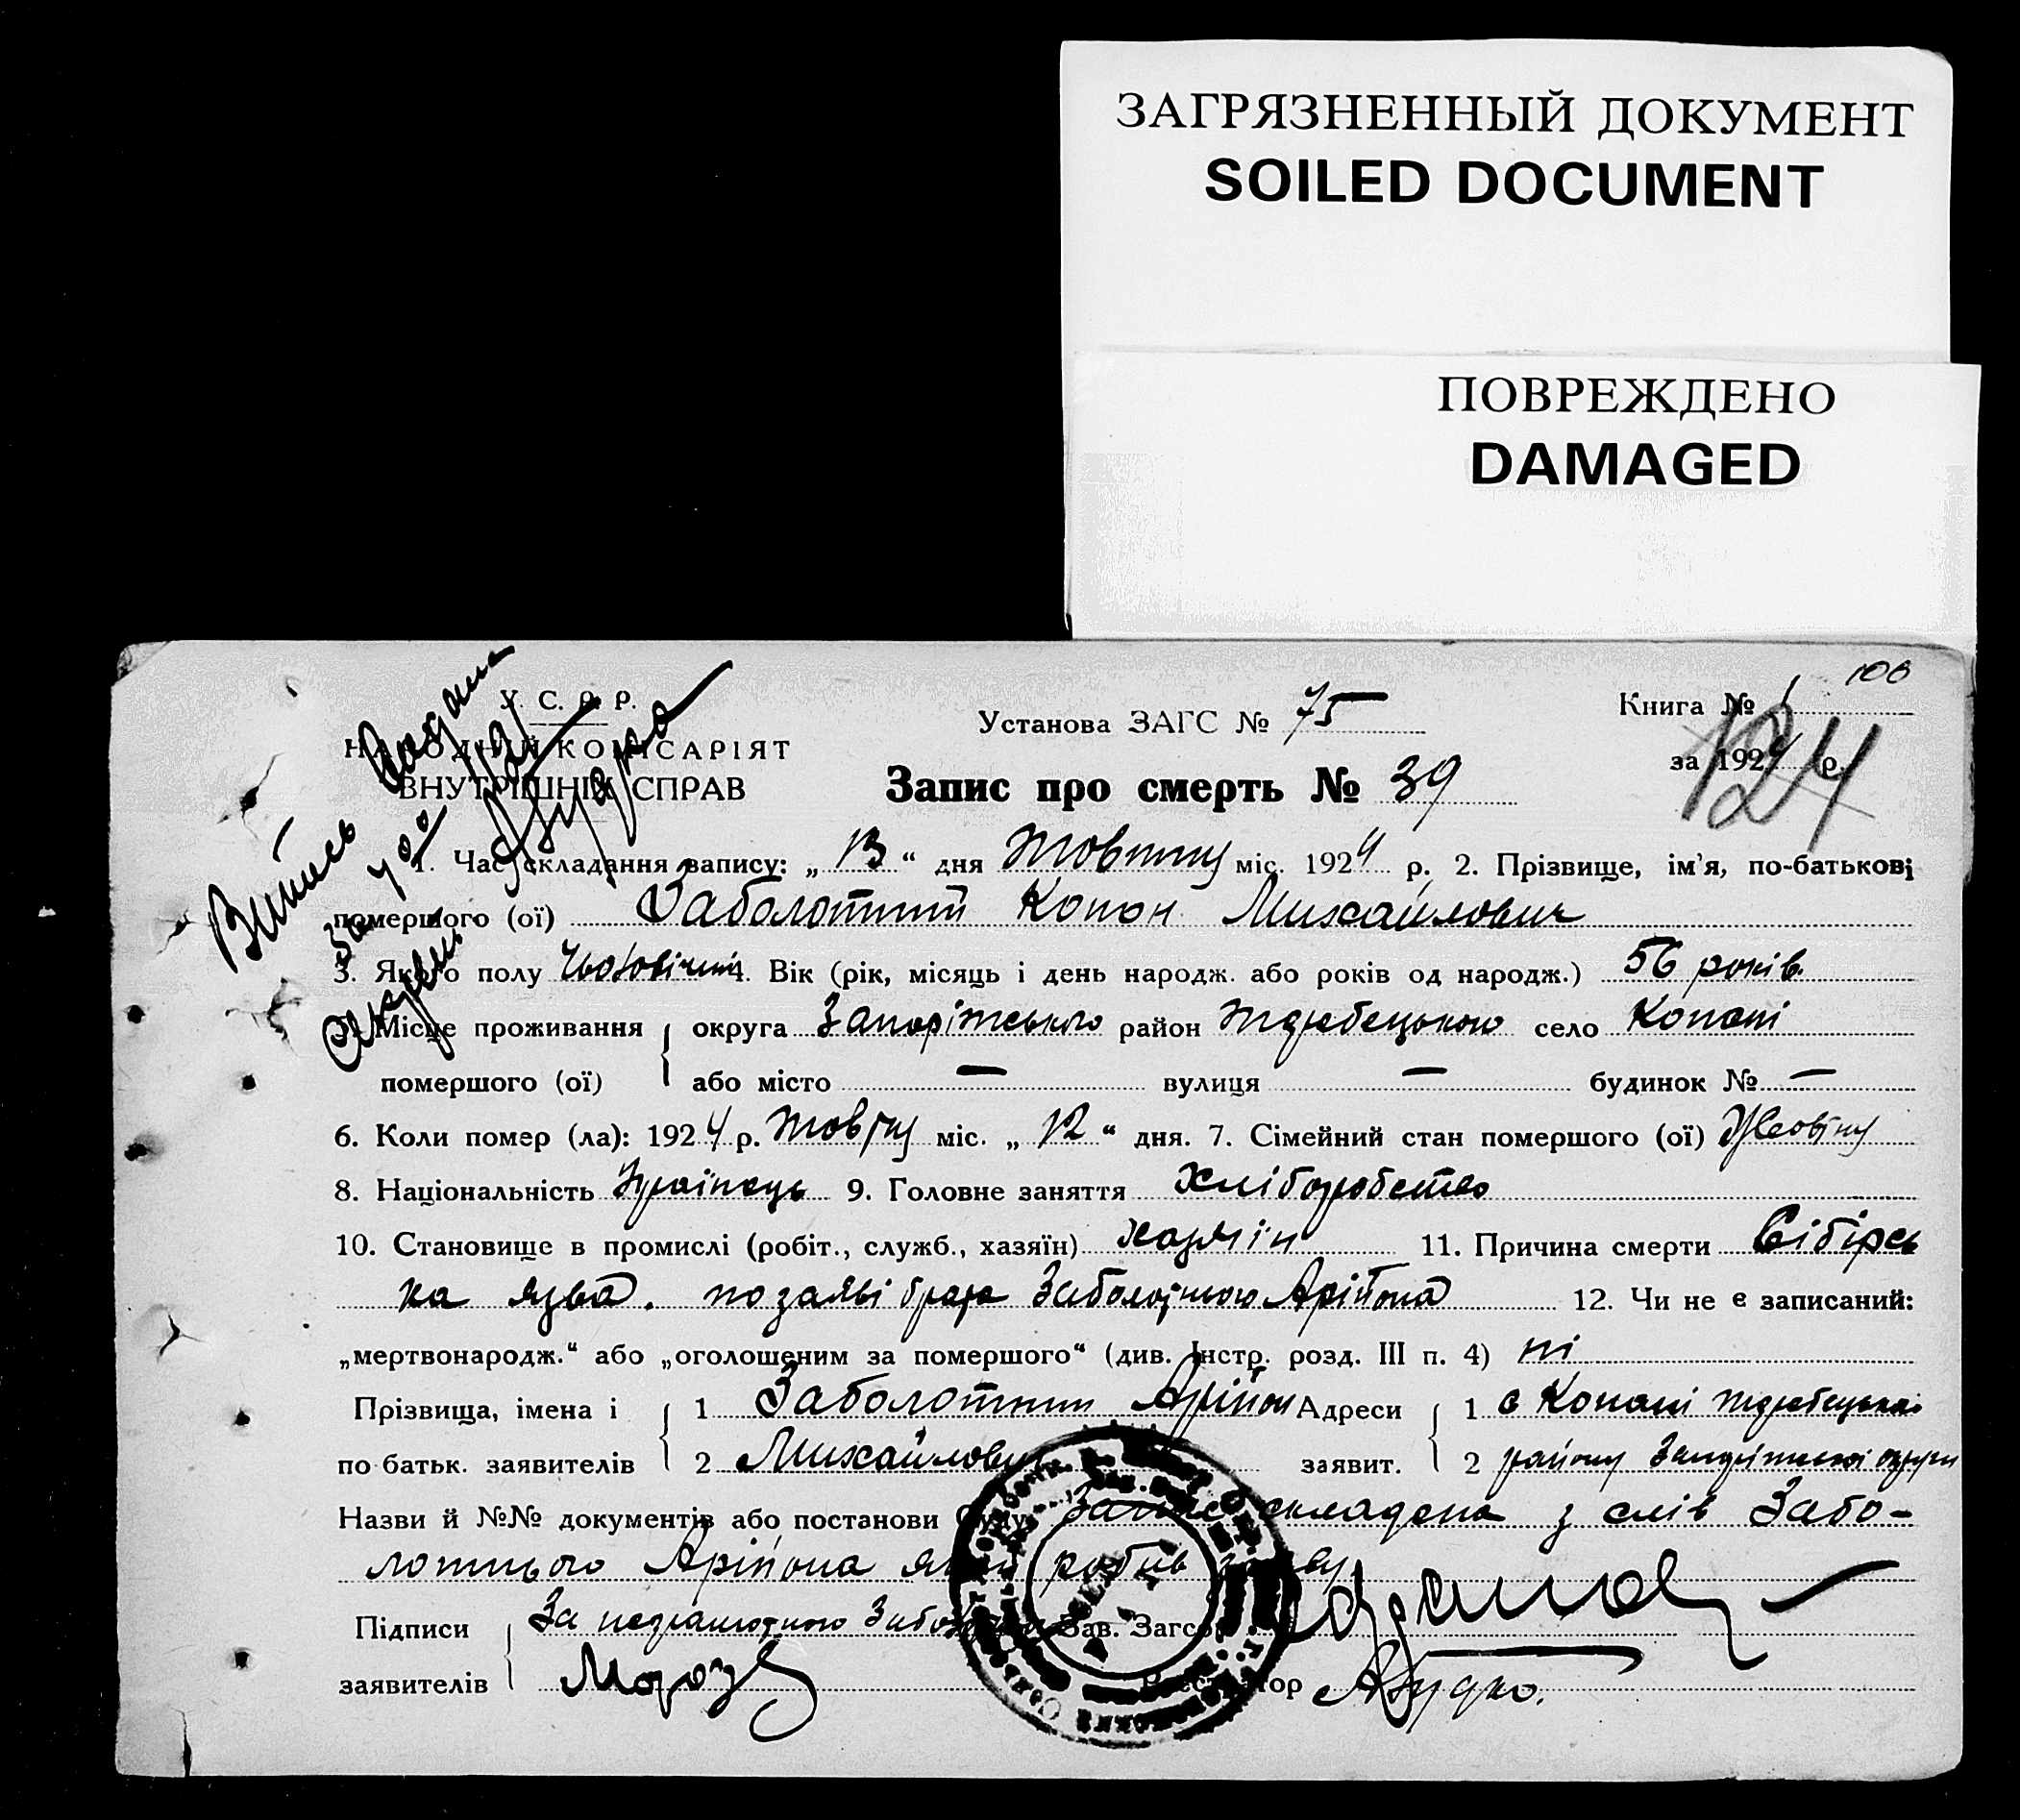 ЗАГРЯЗНЕННЫЙ ДОКУМЕНТ
SOILED DOCUMENT
ПОВРЕЖДЕНО
DAMAGED
100
У. С. Р. Р.
НАРОДНІЙ КОМІСАРІЯТ
ВНУТРІШНІХ СПРАВ
Установа ЗАГС № 75
Книга № 1
за 1924 р.
124
Запис про смерть № 39
1. Час складання запису: „13“ дня Жовтня міс. 1924 р. 2. Прізвище, ім'я, по-батькові
помершого (ої) Заболотний Конон Михайлович
3. Якого полу Чоловічий 4. Вік (рік, місяць і день народж. або років од народж.) 56 років.
5. Місце проживання округа Запоріжського район село Копані
помершого (ої) або місто — вулиця — будинок № —
6. Коли помер (ла): 1924 р. Жовтня міс. „12“ дня. 7. Сімейний стан помершого (ої)
8. Національність Українець 9. Головне заняття Хліборобство
10. Становище в промислі (робіт., служб., хазяїн) хазяін 11. Причина смерти Сібірсь
ка язва. по заяві брата Заболотнього Арійона 12. Чи не є записаний:
„мертвонародж.“ або „оголошеним за помершого“ (див. Інстр. розд. III п. 4) ні
Прізвища, імена і 1 Заболотний Арійон Адреси 1 с Копані
по батьк. заявителів 2 Михайлович заявит. 2 району Запоріжської округи
Назви й №№ документів або постанови Суду Запис складена з слів Забо-
лотнього Арійона який робив заяву
Підписи За неграмотного Зав. Загсом
заявителів Мороз Реєстратор